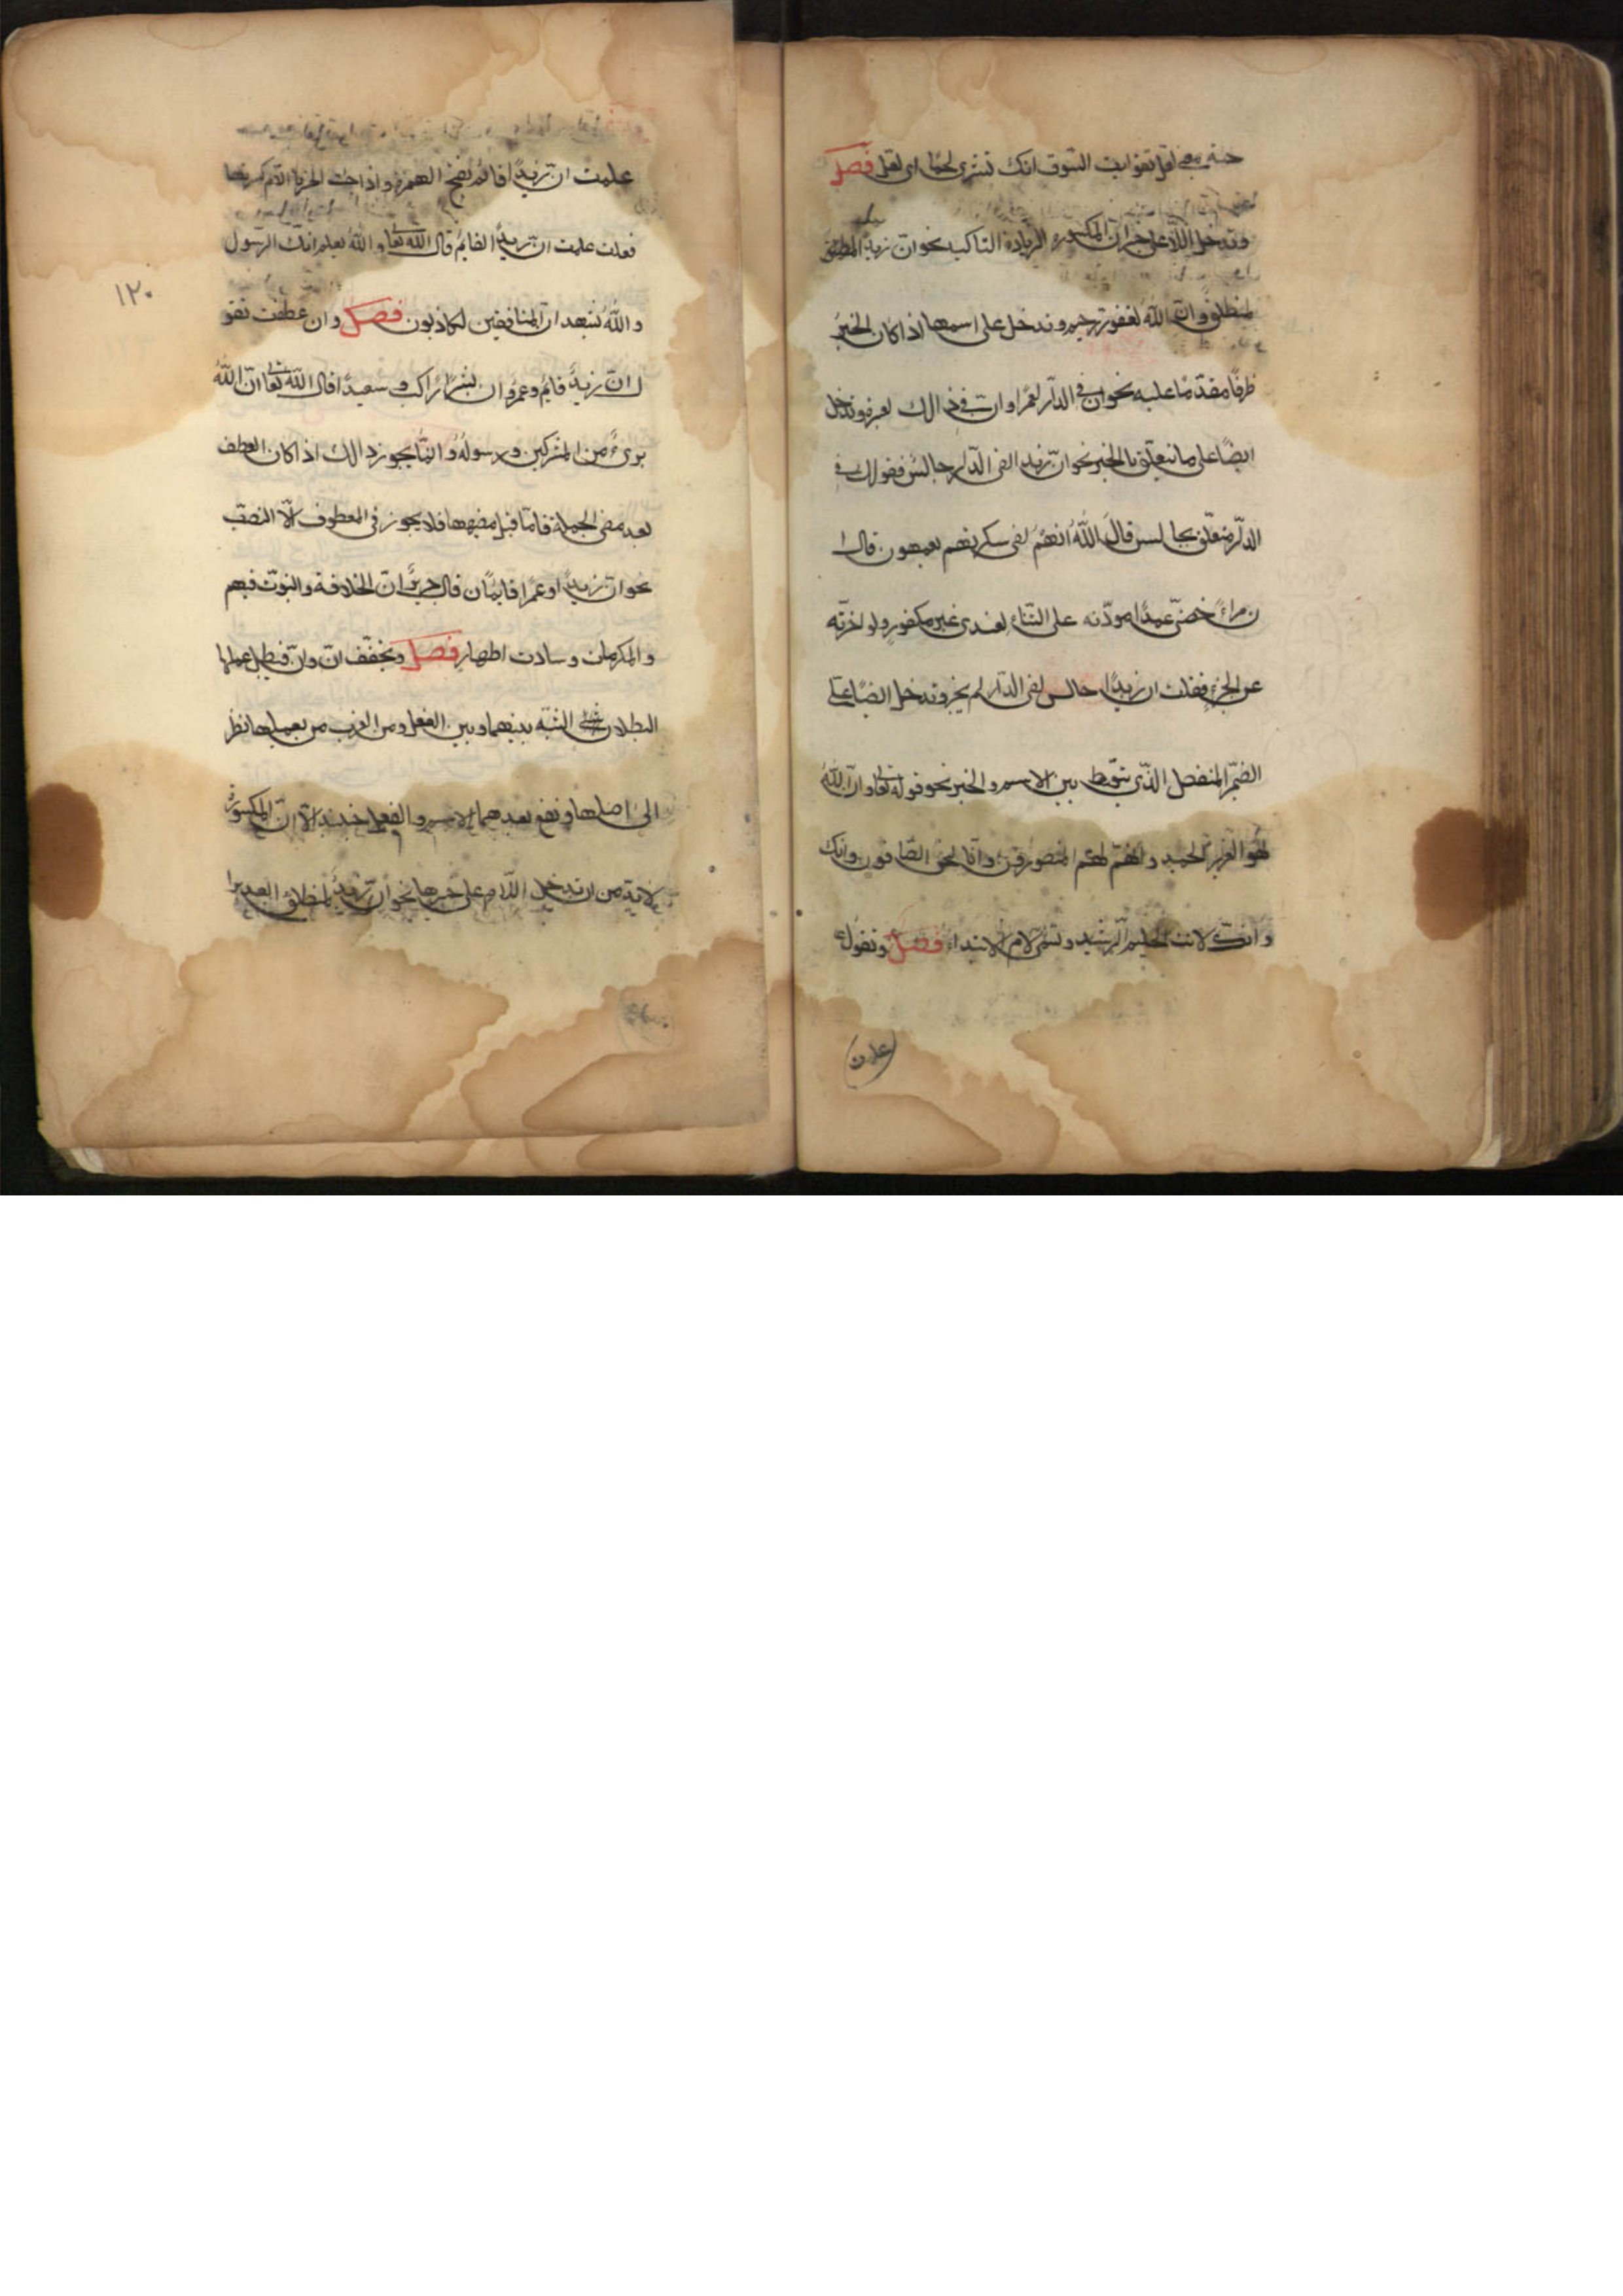 حتى بمعنى لعل تقول ايت السوق انك تشترى لحما اى لعل فصل
وتدخل اللام على خبر ان المكسورة لزيادة التاكيد نحو ان زيدا
لمنطلق وان الله لغفور رحيم وتدخل على اسمها اذا كان الخبر
ظرفا مقدما عليه نحو ان فى الدار لعمرا وان فى ذالك لعبرة وتدخل
ايضا على ما يتعلق بالخبر نحو ان زيدا لفى الدار جالس فقولك فى
الدار متعلق بجالس قال الله انهم لفى سكرتهم يعمهون قال ا
ن امراً خصنى عمدا مودته على التنائى لعندى غير مكفور ولو اخرته
عن الجزء فقلت ان زيدا جالس لفى الدار لم يجز وتدخل ايضا على
الضمير المنفصل الذى يتوسط بين الاسم والخبر نحو قوله تعا وان الله
لهو العزيز الحميد وانهم لهم المنصورون وانا لنحن الصافون وانك
وانك لانت الحليم الرشيد وتسمى لام الابتداء فصل وتقول
علمت
علمت ان زيدا قائم بفتح الهمزة واذا جئت باللام كسرتها
فقلت علمت ان زيدا لقايم قال الله تعا والله يعلم انك لرسول
والله يشهد ان المنافقين لكاذبون فصل وان عطفت تقو
ل ان زيدا قايم وعمرو وان بشرا راكب و سعيدا قال الله تعا ان الله
برىء من المشركين ورسوله وانما يجوز ذالك اذا كان العطف
بعد مضى الجملة فاما قبل مضيها فلا يجوز فى المعطوف الا النصب
نحو ان زيدا وعمرا قايمان قال جرير ان الخلافة والنبوت فيهم
والمكرمات وسادت اطهار فصل وتخفف ان وان فيبطل عملها
لبطلان الشبه بينهما وبين الفعل ومن العرب من يعملها نظر
الى اصلها وتقع بعدهما الاسم والفعل حينئذ الا ان المكسورة
لابد من ان تدخل اللام على خبرها نحو ان زيد لمنطلق
١٢٠